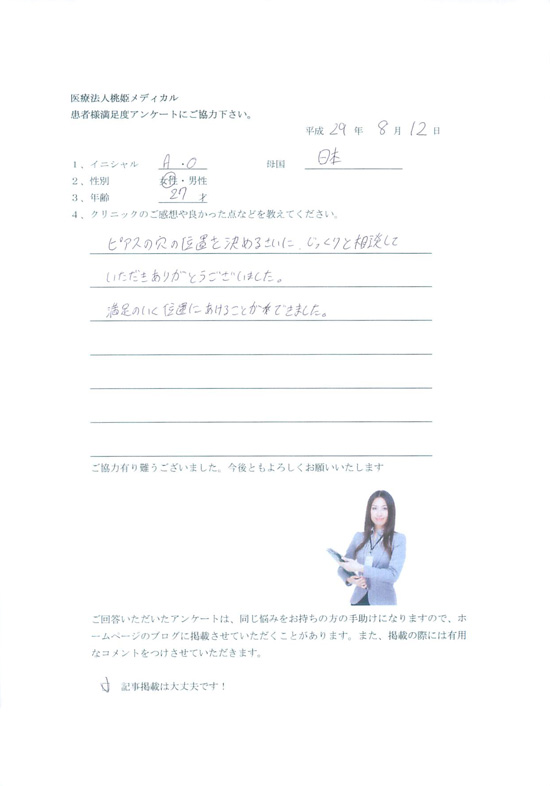 医療法人桃姫メディカル
患者様満足度アンケートにご協力下さい。
平成 29 年 8 月 12 日
1、イニシャル A・O 母国 日本
2、性別 女性・男性
3、年齢 27 才
4、クリニックのご感想や良かった点などを教えてください。
ピアスの穴の位置を決めるさいに、じっくりと相談して
いただきありがとうございました。
満足のいく位置にあけることができました。
ご協力有り難うございました。今後ともよろしくお願いいたします
ご回答いただいたアンケートは、同じ悩みをお持ちの方の手助けになりますので、ホ
ームページのブログに掲載させていただくことがあります。また、掲載の際には有用
なコメントをつけさせていただきます。
記事掲載は大丈夫です！